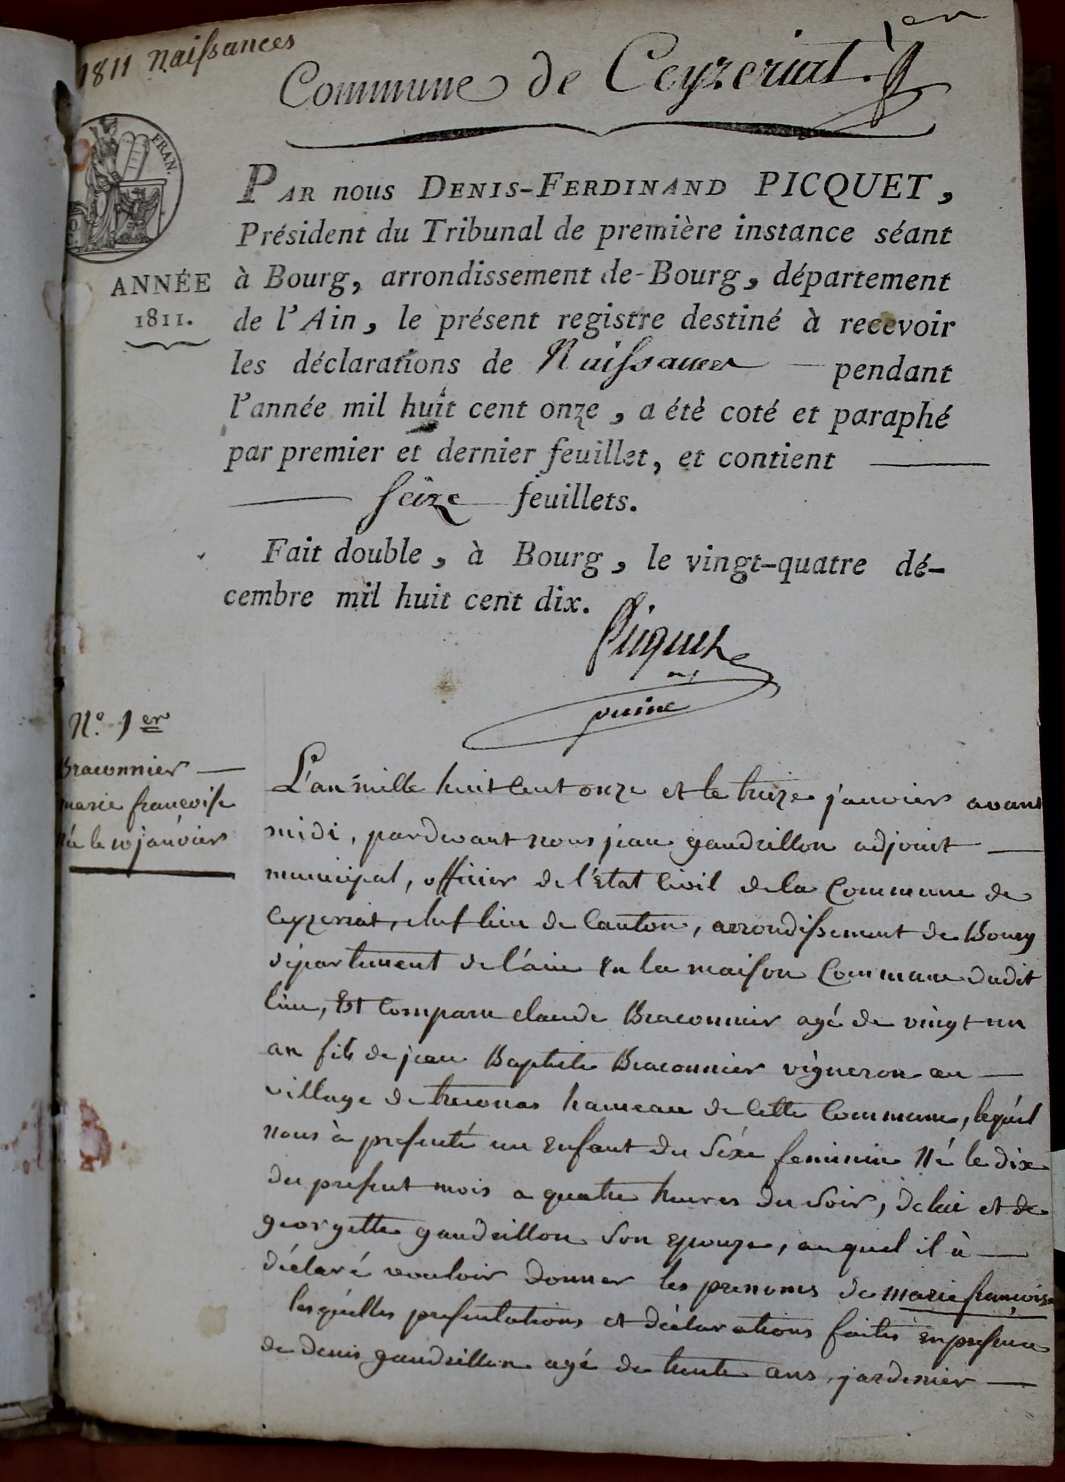 1811 Naissances
Commune de Ceyzeriat.
FRAN.
PAR nous DENIS-FERDINAND PICQUET,
Président du Tribunal de première instance séant
ANNÉE
1811.
à Bourg, arrondissement de Bourg, département
de l'Ain, le présent registre destiné à recevoir
les déclarations de Naissances pendant
l'année mil huit cent onze, a été coté et paraphé
par premier et dernier feuillet, et contient
seize feuillets.
Fait double, à Bourg, le vingt-quatre dé-
cembre mil huit cent dix.
Picquet
N.o 1er
Braconnier
marie francoise
Né le 10 janvier
L'an mille huit cent onze et le treize janvier avant
midi, pardevant nous jean gaudrillon adjoint
municipal, officier de l'état Civil de la Commune de
Ceyzeriat, chef lieu de Canton, arrondissement de Bourg
département de l'ain en la maison Commune dudit
lieu, Est Comparu claude Braconnier agé de vingt un
an fils de jean Baptiste Braconnier vigneron au
village de treconas hameau de Cette Commune, lequel
nous à presenté un Enfant du Séxe feminin Né le dix
du present mois a quatre heures du Soir, de lui et de
georgette gaudrillon Son epouze, auquel il à
déclaré vouloir donner les prenoms de marie françoise
lesquelles presentations et déclarations faites en presence
de denis gaudrillon agé de trente ans, jardinier